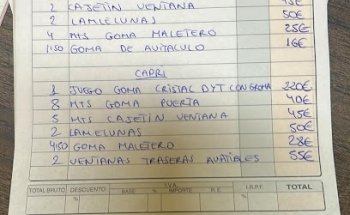 2 CAJETIN VENTANA 45€
2 LAMELUNAS 50€
4 MTS GOMA MALETERO 25€
1'50 GOMA DE 16€
CAPRI
1 JUEGO GOMA CRISTAL DYT CON CROMA 220€
8 MTS GOMA PUERTA 40€
5 MTS CAJETIN VENTANA 45€
2 LAMELUNAS 50€
4'50 GOMA MALETERO 28€
2 VENTANAS TRASERAS 55€
TOTAL BRUTO DESCUENTO I.V.A. I.R.P.F. TOTAL
% BASE % IMPORTE R.E.